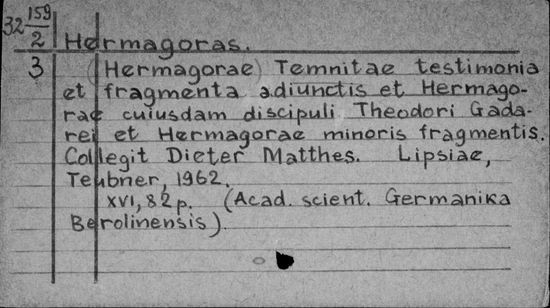 32 159/2
3
Hermagoras.
(Hermagorae) Temnitae testimonia
et fragmenta adiunctis et Hermago-
rae cuiusdam discipuli Theodori Gada-
rei et Hermagorae minoris fragmentis.
Collegit Dieter Matthes. Lipsiae,
Teubner, 1962.
XVI, 82 p. (Acad. scient. Germanika
Berolinensis).